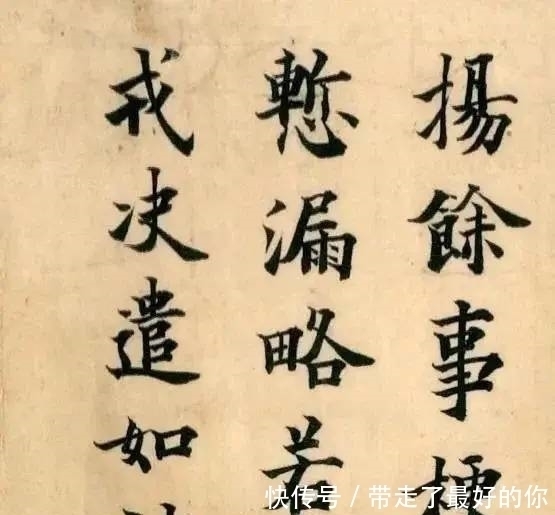 揚餘事
慙漏略若
戎决遣如
快传号／带走了最好的你